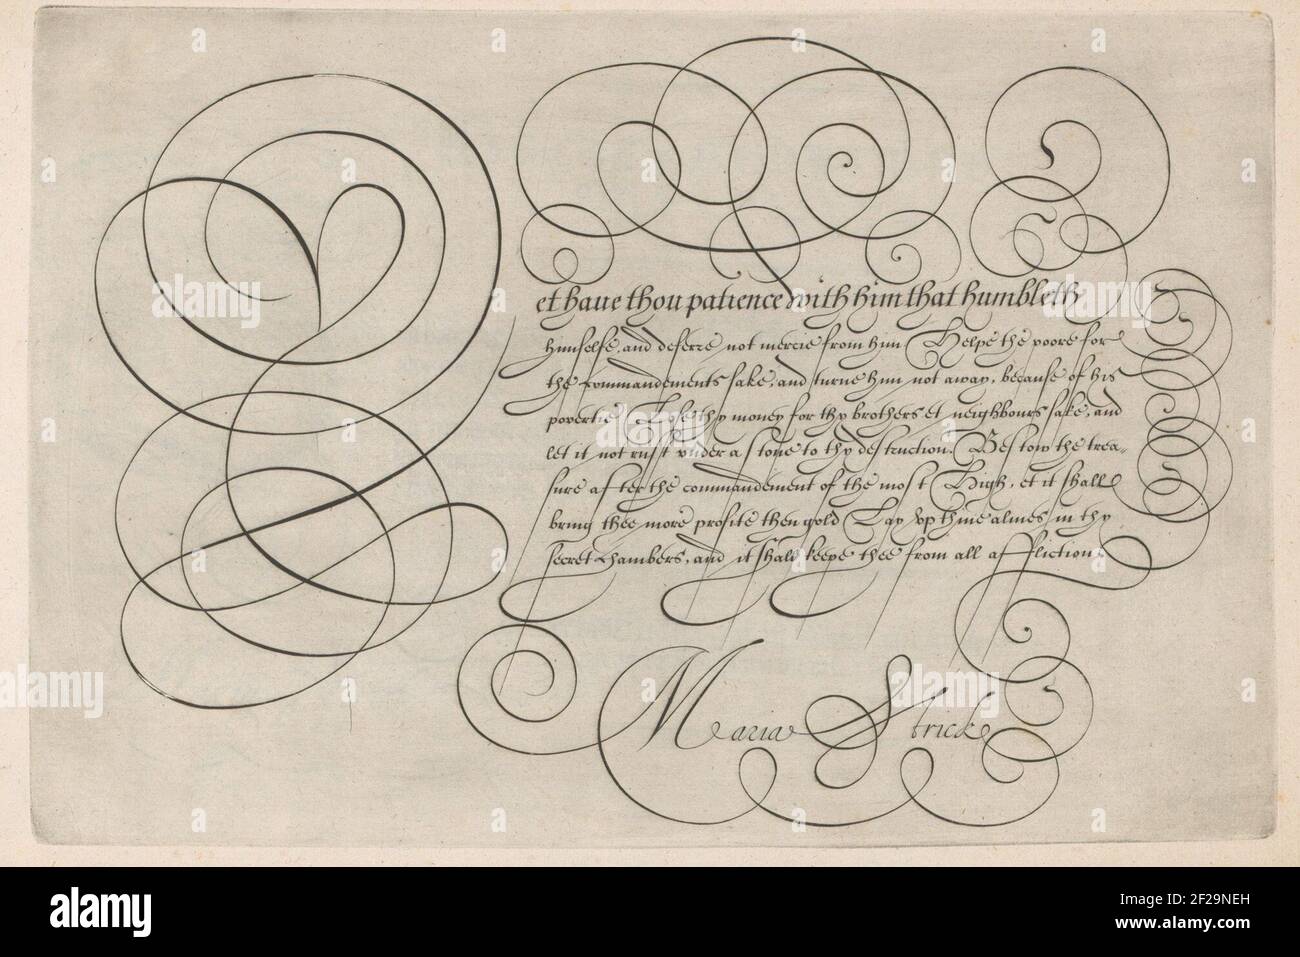 Yet haue thou patience with him that humbleth
himselfe, and deferre not mercie from him Helpe the poore for
the commandements sake, and turne him not away, because of his
povertie Lose thy money for thy brothers et neighbours sake, and
let it not rust vnder a stone to thy destruction. Bestow the trea-
sure after the commandement of the most High, et it shall
bring thee more profite then gold Lay vp thine almes in thy
secret chambers, and it shall keepe thee from all affliction
Maria Strick
alamy
Image ID: 2F29NEH
www.alamy.com